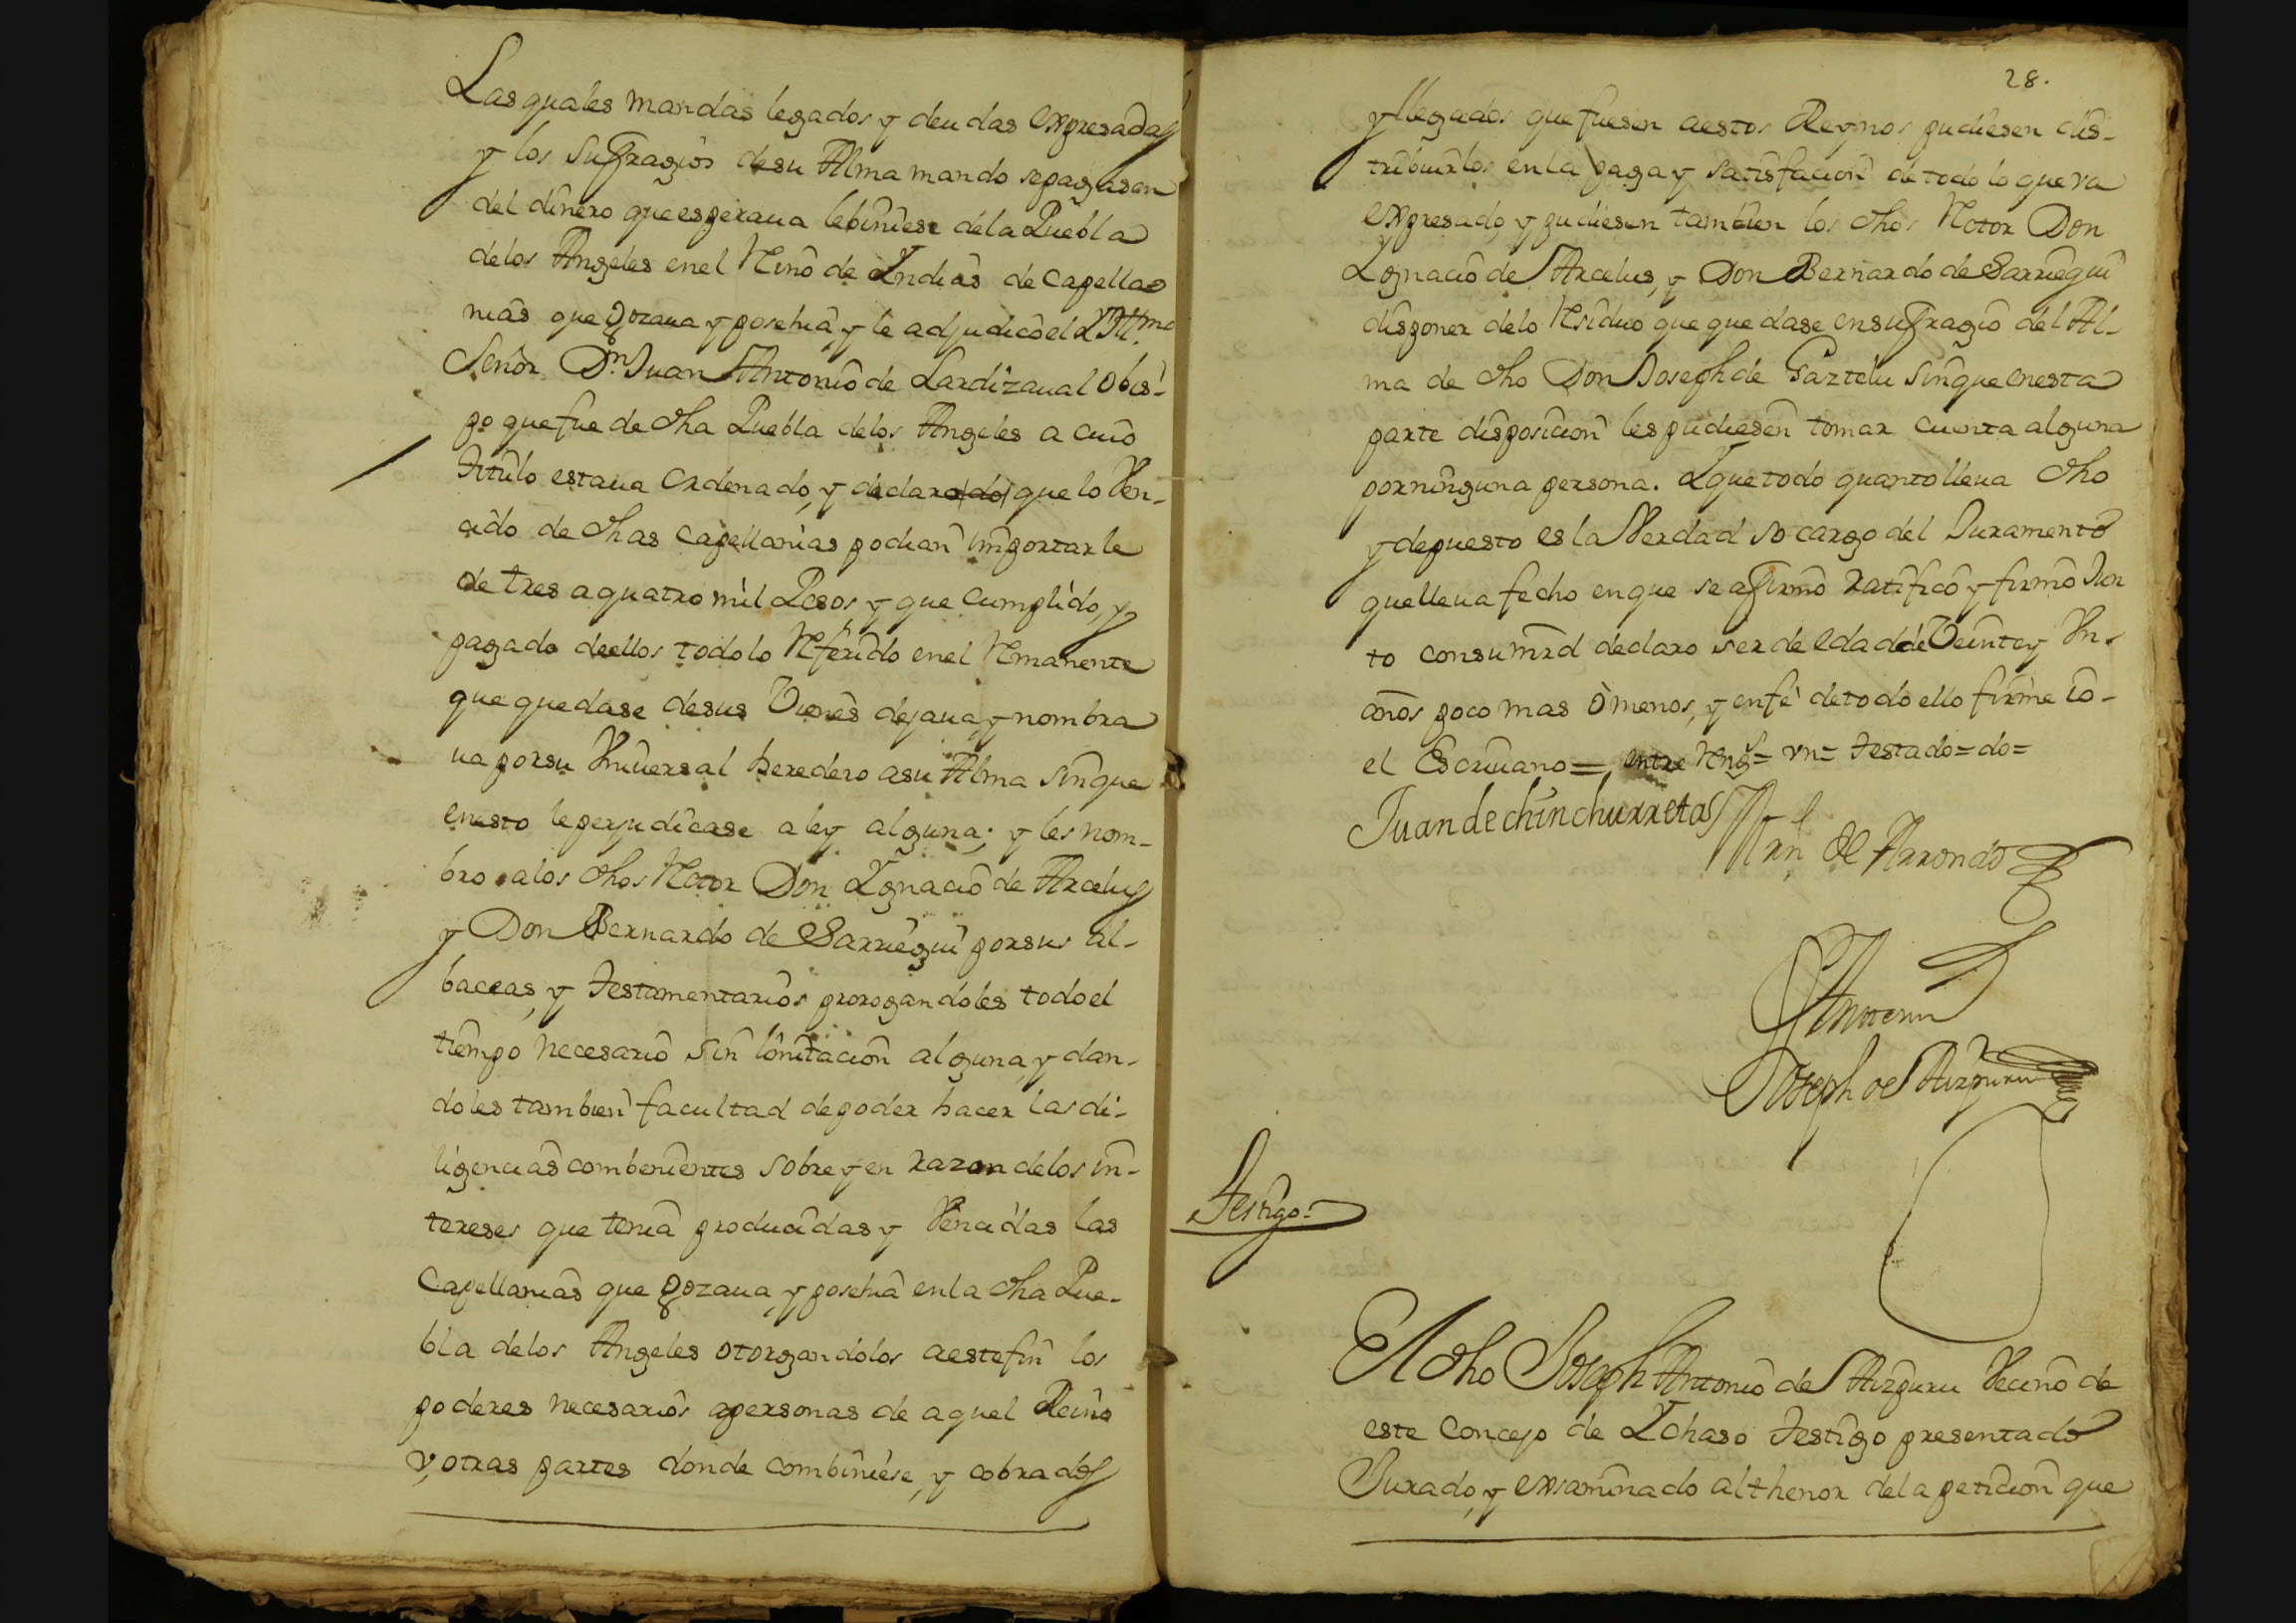 Las quales mandas legados y deudas expresadas
y los sufragios de su Alma mando se pagasen
del dinero que esperaua le biniese de la Puebla
de los Angeles en el Reino de Yndias de Capella-
nias que gozaua y posehia, y le adjudicò el Yllmo
Señor Dn Juan Antonio de Lardizaual Obis-
po que fue de dha Puebla de los Angeles a cuio
Titulo estaua ordenado, y declarodo que lo Ven-
cido de dhas Capellanias podian importarle
de tres a quatro mil Pesos y que cumplido, y
pagado de ellos todo lo Referido en el Remanente
que quedase de sus Vienes dejaua, y nombra
ua por su Vniversal heredero a su Alma sin que
en esto le perjudicase a ley alguna; y les nom-
bro a los dhos Retor Don Ygnacio de Arcelus
y Don Bernardo de Sarriegui por sus al-
baceas, y Testamentarios prorogandoles todo el
tiempo necesario sin limitacion alguna, y dan-
doles tambien facultad de poder hacer las di-
ligencias combenientes sobre y en razon de los in-
tereses que tenia producidas y Vencidas las
Capellanias que gozaua, y posehia en la dha Pue-
bla de los Angeles otorgandolos a este fin los
poderes necesarios a personas de aquel Reino
y, otras partes donde combiniese, y cobrados
28.
y llegados que fuesen a estos Reynos pudiesen dis-
tribuirlos en la paga y satisfacion de todo lo que va
expresado, y pudiesen tambien los dhos Retor Don
Ygnacio de Arcelus, y Don Bernardo de Sarriegui
disponer de lo Residuo que quedase en sufragio del Al-
ma de dho Don Joseph de Gaztelu sin que en esta
parte disposicion les pudiesen tomar cuenta alguna
por ninguna persona. Y que todo quanto lleua dho
y depuesto es la Verdad so cargo del Juramento
que lleua fecho en que se afirmò ratificò y firmò Jun
to con su mrd declaro ser de edad de Veinte y Vn
años poco mas ò menos, y en fè de todo ello firmè io
el Escriuano = entre Rengs = vn = Testado = do =
Juan de chinchurretas Mrn de Arrondo
Ante mi
Joseph de Aizpuru
Testigo =
El dho Joseph Antonio de Aizpuru Vecino de
este Concejo de Ychaso Testigo presentado
Jurado, y exsaminado al thenor de la peticion que